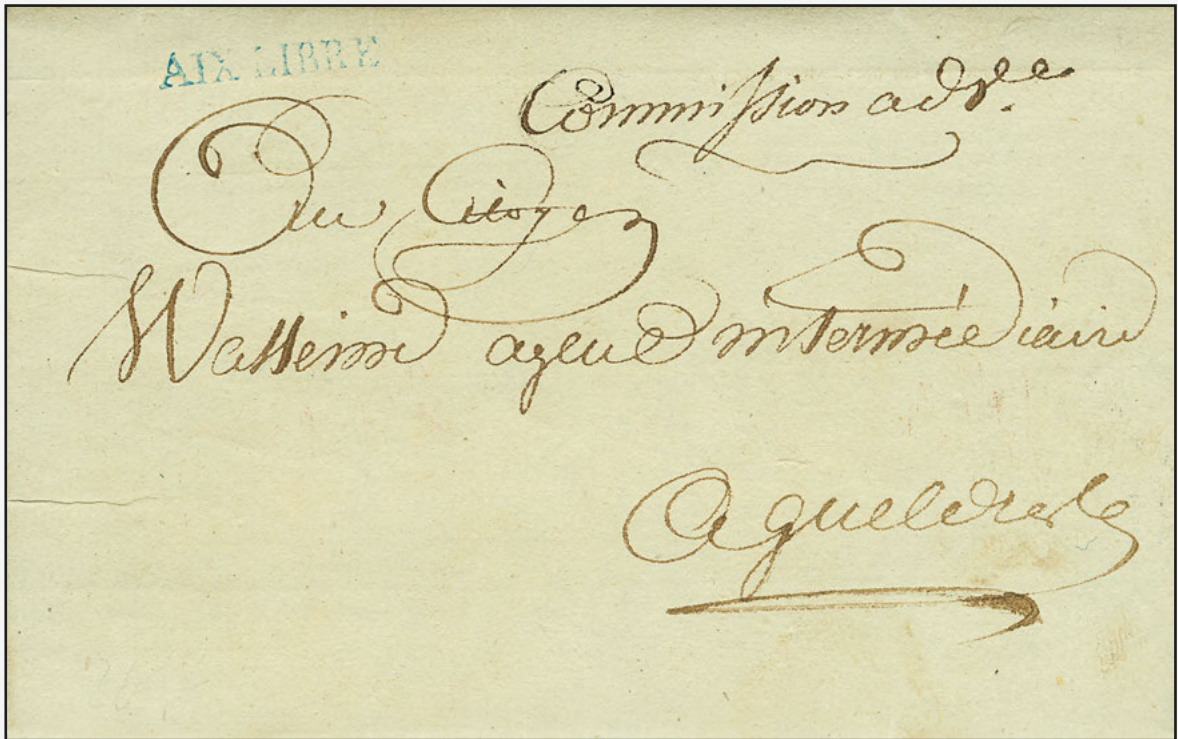 AIX LIBRE
Commission ad.ve
Au Citoyen
agent intermédiaire
A gueldres